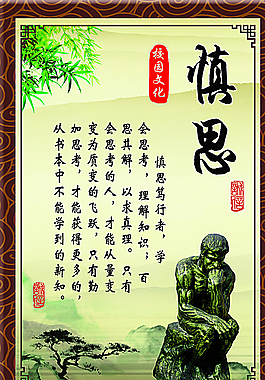 慎思
校园文化
慎思笃行者，学
会思考，理解知识；百
思其解，以求真理。只有
会思考的人，才能从量变
变为质变的飞跃，只有勤
加思考，才能获得更多的，
从书本中不能学到的新知。